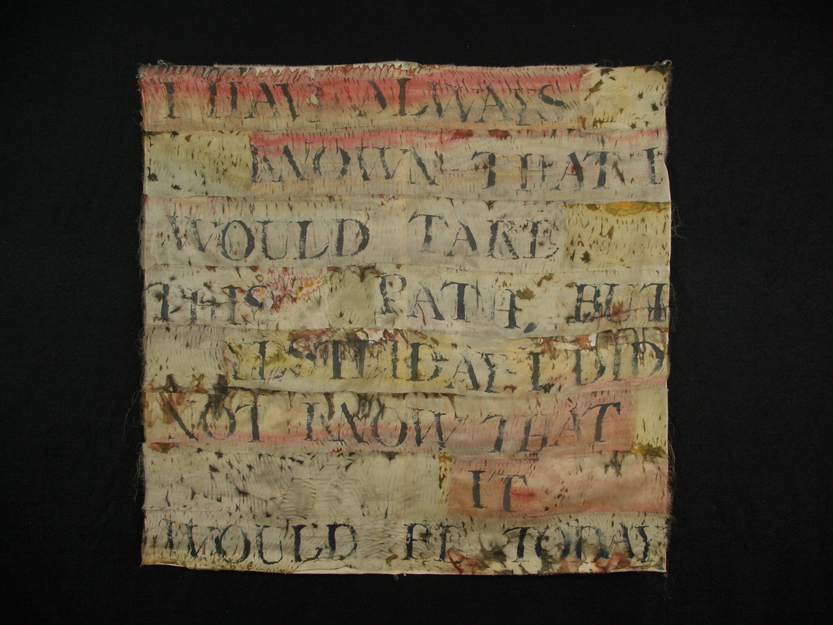 I HAVE ALWAYS
KNOWN THAT I
WOULD TAKE
THIS PATH, BUT
YESTERDAY I DID
NOT KNOW THAT
IT
WOULD BE TODAY